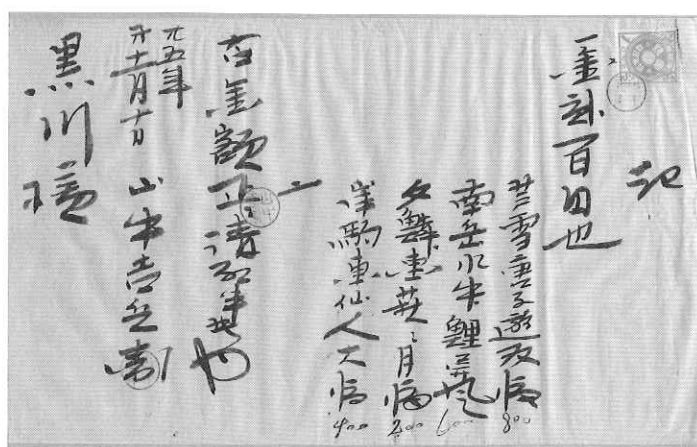 記
一金弐百円也
芦雪唐子遊双幅 800
南岳水牛鯉屏風 600
文麟 月幅 200
岸駒 仙人大幅 400
右金額正ニ請取申候也
廿五年
十一月十日 山中吉兵衛
黒川様